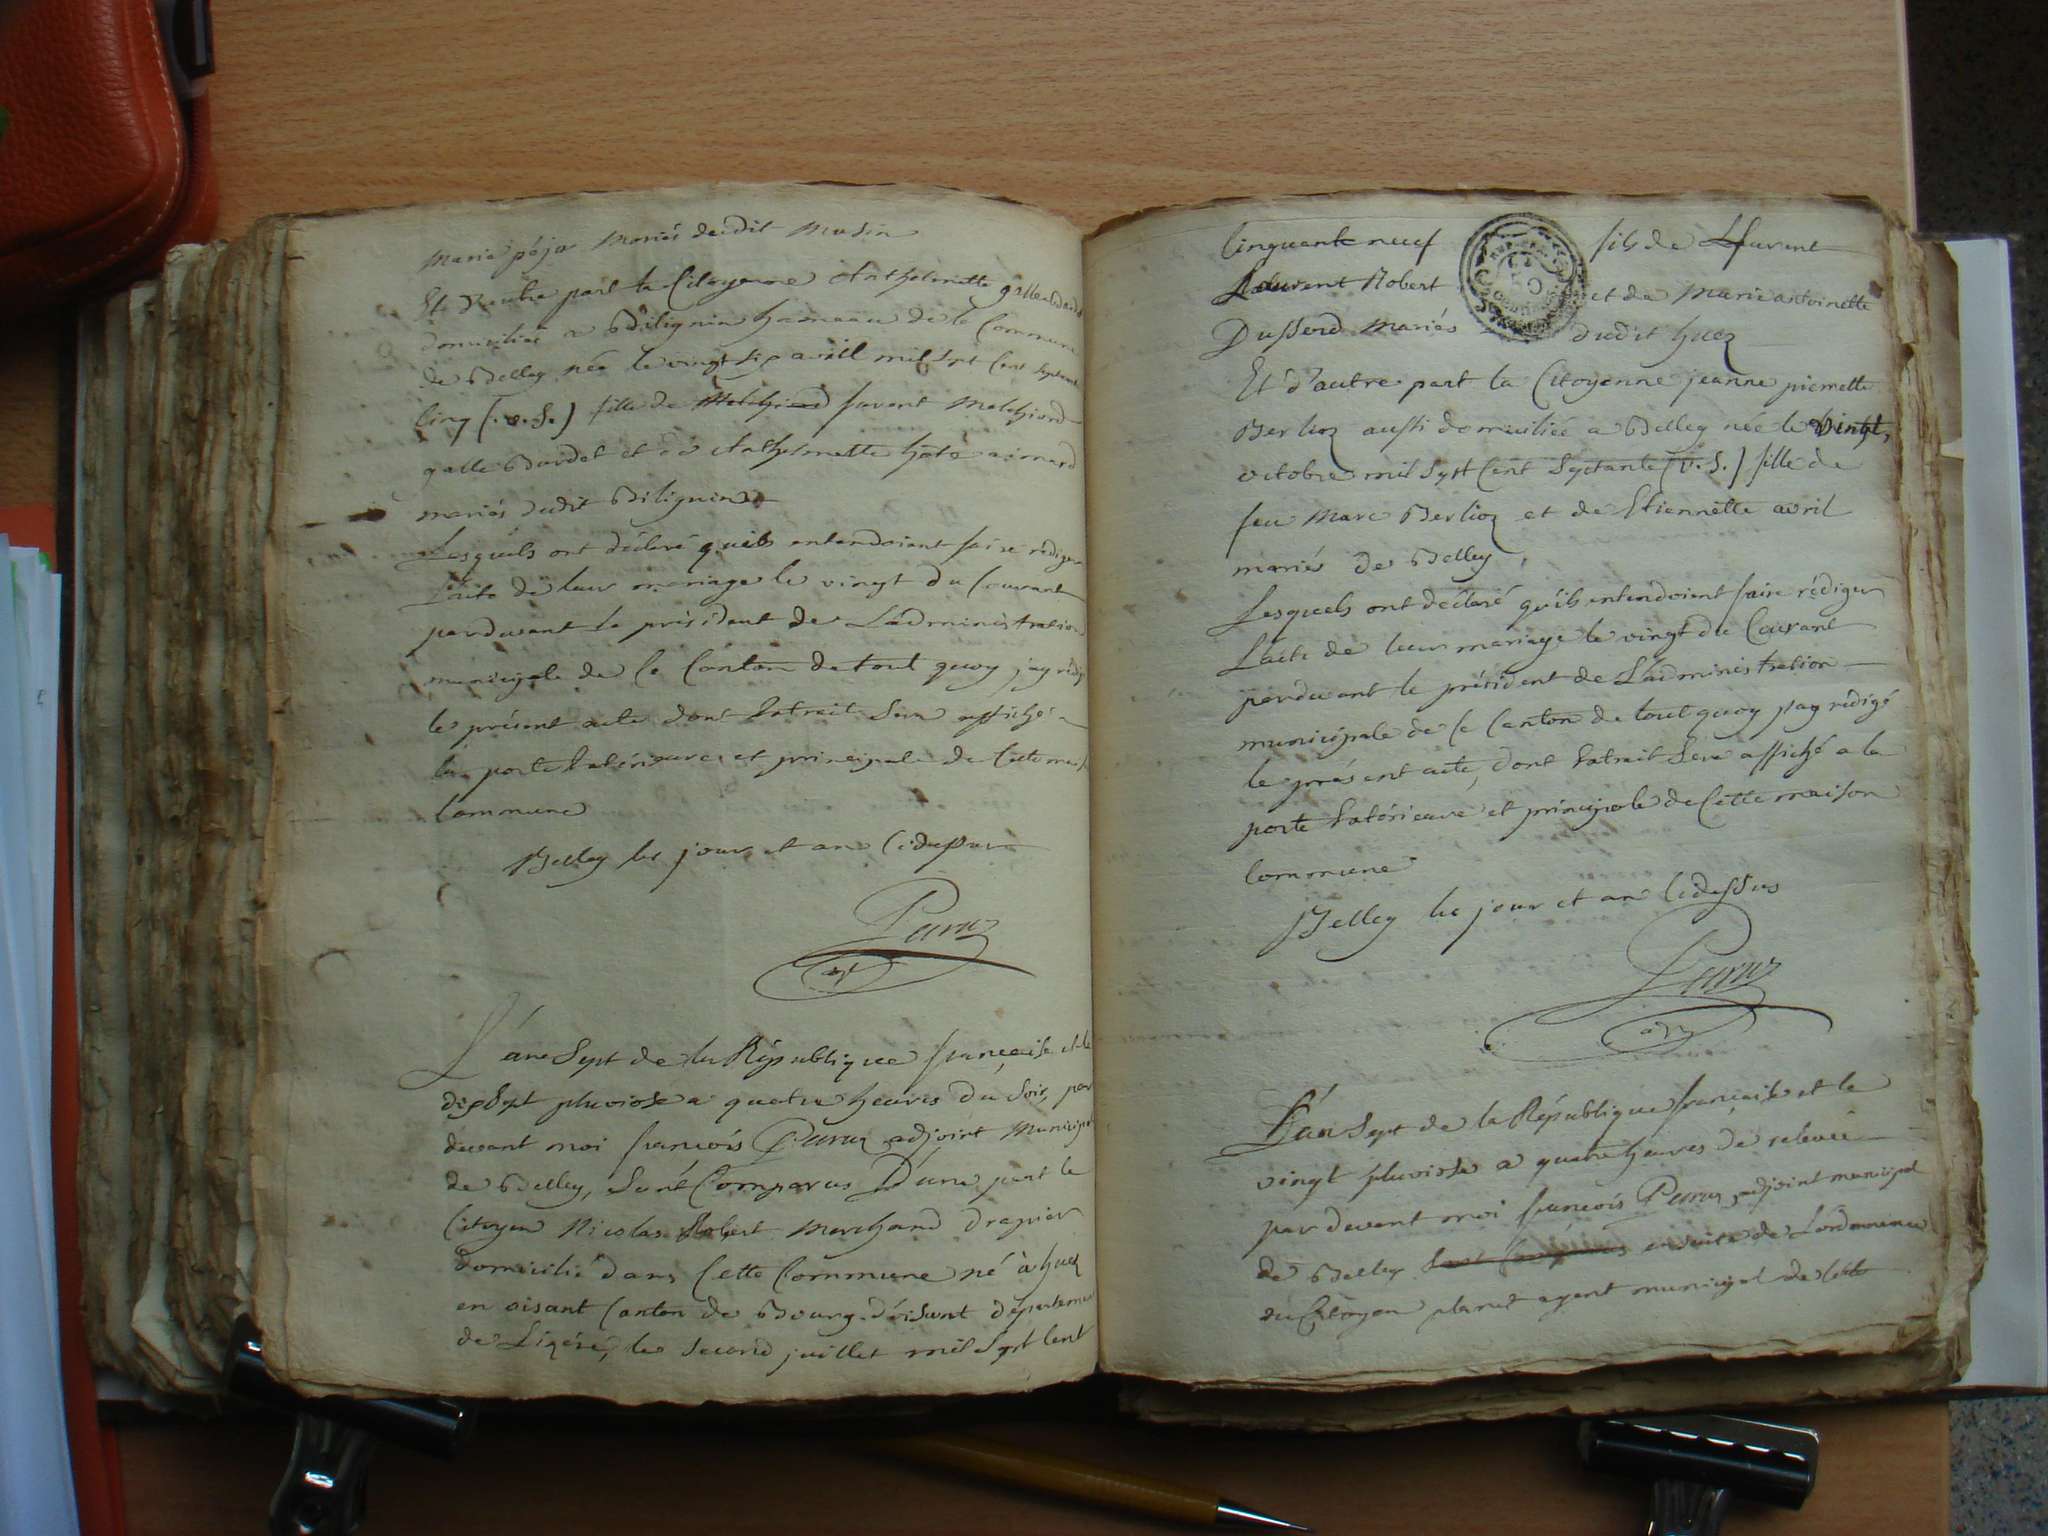 Marie péjor mariés dudit Musin
Et d'autre part la Citoyenne Anthelmette galle Bardet
domiciliée a Bilignin hameau de la Commune
de Belley née le vingt six avril mil sept Cent septante
Cinq (.v.S.) fille de Melchiord furent Melchiord
galle Bardet et de Anthelmette hôte aimard
mariés dudit Bilignin
Lesquels ont déclaré quils entendoient faire rédiger
L'acte de leur mariage le vingt du Courant
pardevant le président de L'administration
municipale de Ce Canton de tout quoy j'ay rédigé
le présent acte dont Extrait sera affiché a
la porte Extérieure et principale de Cette maison
Commune
Belley les jour et an Cidessus
Parra
adjt
L'an Sept de la République francaise et le
dixsept pluviose a quatre heures du Soir, par
devant moi francois Parra adjoint Municipal
de Belley, Sont Comparus D'une part le
Citoyen Nicolas Robert Marchand drapier
domicilié dans Cette Commune né à huez
en oisant Canton de Bourg-d'oisant département
de Lizére, le second juillet mil Sept Cent
Cinquante neuf fils de furent
Laurent Robert et de Marie antoinette
Dusserd mariés dudit huez
Et d'autre part la Citoyenne jeanne pierrette
Berlioz aussi domiciliée a Belley née le vingt,
octobre mil Sept Cent Septante (v.S.) fille de
feu Marc Berlioz et de Etiennette avril
mariés de Belley,
Lesquels ont déclaré qu'ils entendoient faire rédiger
L'acte de leur mariage le vingt du Courant
pardevant le président de L'administration
municipale de Ce Canton de tout quoy j'ay rédigé
le présent acte, dont Extrait sera affiché a la
porte Extérieure et principale de Cette maison
Commune
Belley les jour et an Cidessus
Parra
adjt
L'an Sept de la République francaise et le
vingt pluviose a quatre heures de relevée
par devant moi francois Parra adjoint municipal
de Belley Sont Comparus ensuite de Lordonnance
du Citoyen planet agent municipal de Cette